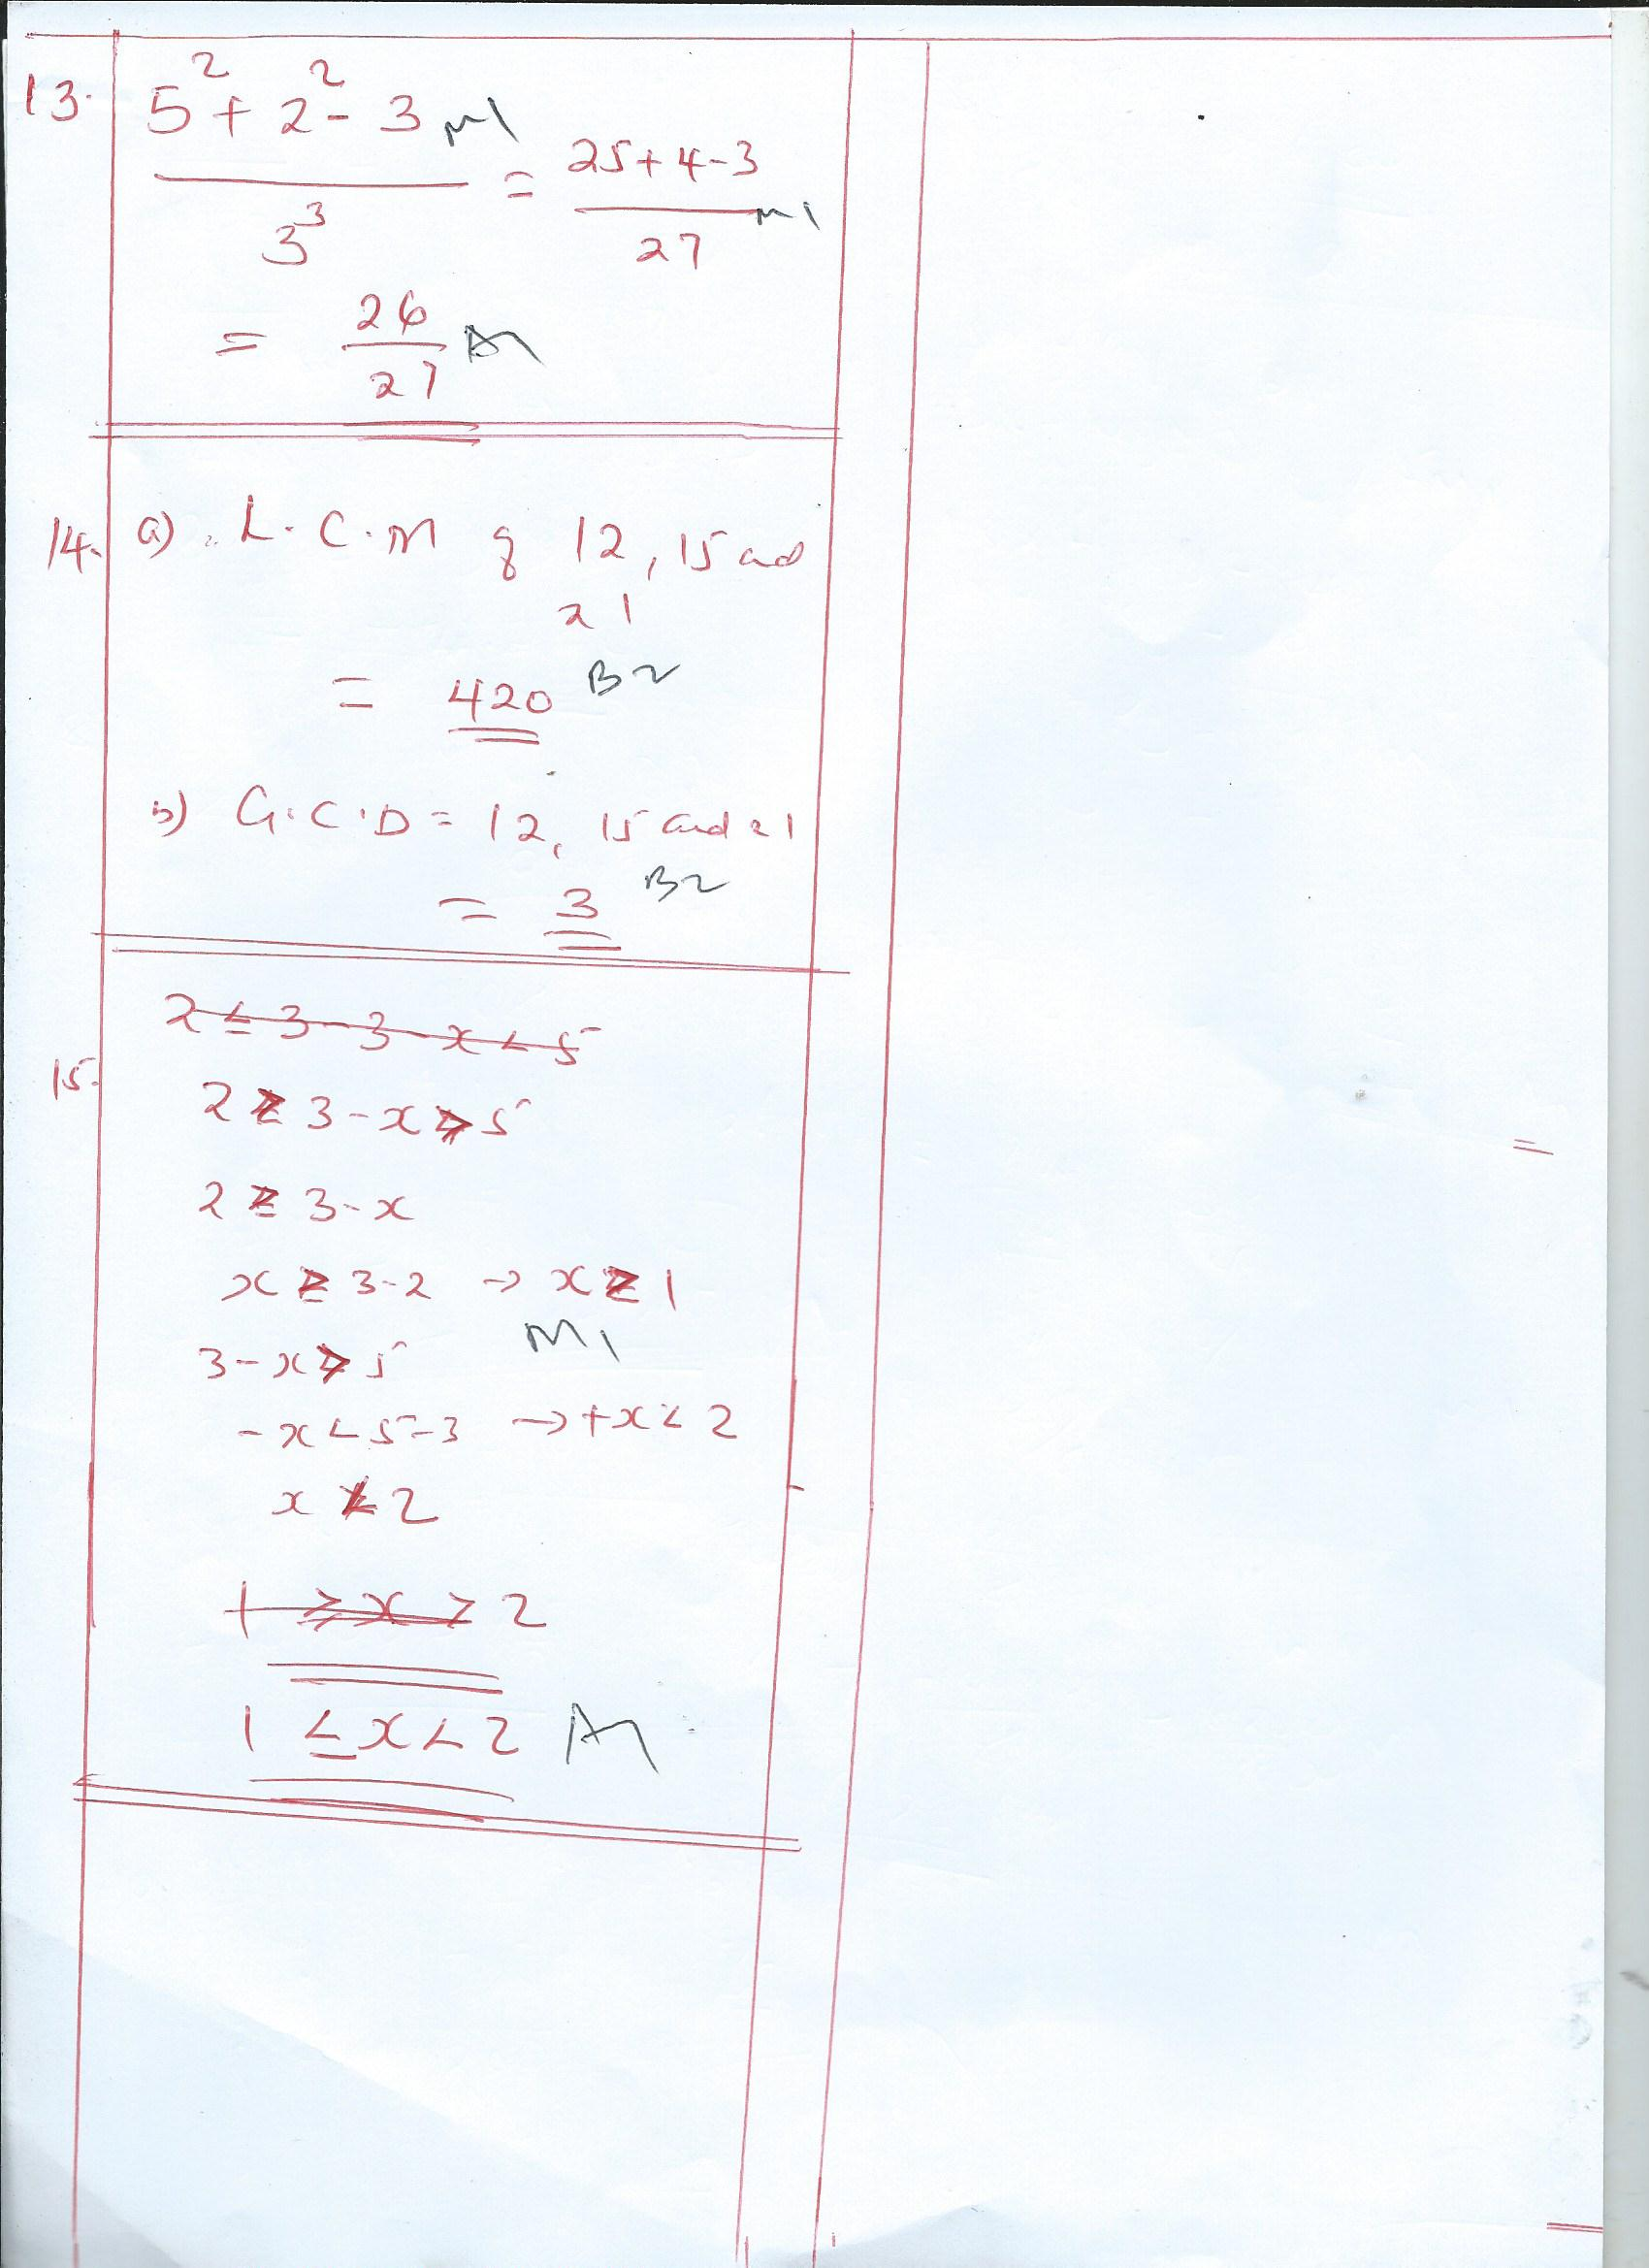 13. 5² + 2² - 3 M1
3³
= 25+4-3 M1
27
= 26 A1
27
14. a) L.C.M of 12, 15 and
21
= 420 B2
b) G.C.D = 12, 15 and 21
= 3 B2
2 ≤ 3 - 3 - x < 5
15.
2 ≥ 3 - x > 5
2 ≥ 3 - x
x ≥ 3-2 → x ≥ 1
M1
3 - x > 5
-x < 5-3 → +x < 2
x < 2
1 ≥ x > 2
1 ≤ x < 2 A1
=